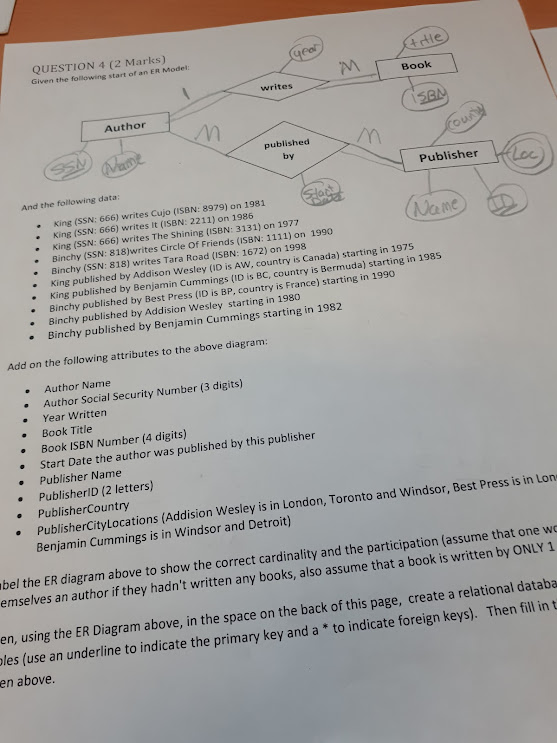 QUESTION 4 (2 Marks)
Given the following start of an ER Model:
year
title
writes
M
Book
1
ISBN
Author
M
published
by
M
County
Publisher
Loc
SSN
Name
Start
Date
Name
ID
And the following data:
• King (SSN: 666) writes Cujo (ISBN: 8979) on 1981
• King (SSN: 666) writes It (ISBN: 2211) on 1986
• King (SSN: 666) writes The Shining (ISBN: 3131) on 1977
• Binchy (SSN: 818)writes Circle Of Friends (ISBN: 1111) on 1990
• Binchy (SSN: 818) writes Tara Road (ISBN: 1672) on 1998
• King published by Addison Wesley (ID is AW, country is Canada) starting in 1975
• King published by Benjamin Cummings (ID is BC, country is Bermuda) starting in 1985
• Binchy published by Best Press (ID is BP, country is France) starting in 1990
• Binchy published by Addision Wesley starting in 1980
• Binchy published by Benjamin Cummings starting in 1982
Add on the following attributes to the above diagram:
• Author Name
• Author Social Security Number (3 digits)
• Year Written
• Book Title
• Book ISBN Number (4 digits)
• Start Date the author was published by this publisher
• Publisher Name
• PublisherID (2 letters)
• PublisherCountry
• PublisherCityLocations (Addision Wesley is in London, Toronto and Windsor, Best Press is in Lon
Benjamin Cummings is in Windsor and Detroit)
abel the ER diagram above to show the correct cardinality and the participation (assume that one wo
emselves an author if they hadn't written any books, also assume that a book is written by ONLY 1
en, using the ER Diagram above, in the space on the back of this page, create a relational databa
bles (use an underline to indicate the primary key and a * to indicate foreign keys). Then fill in t
en above.